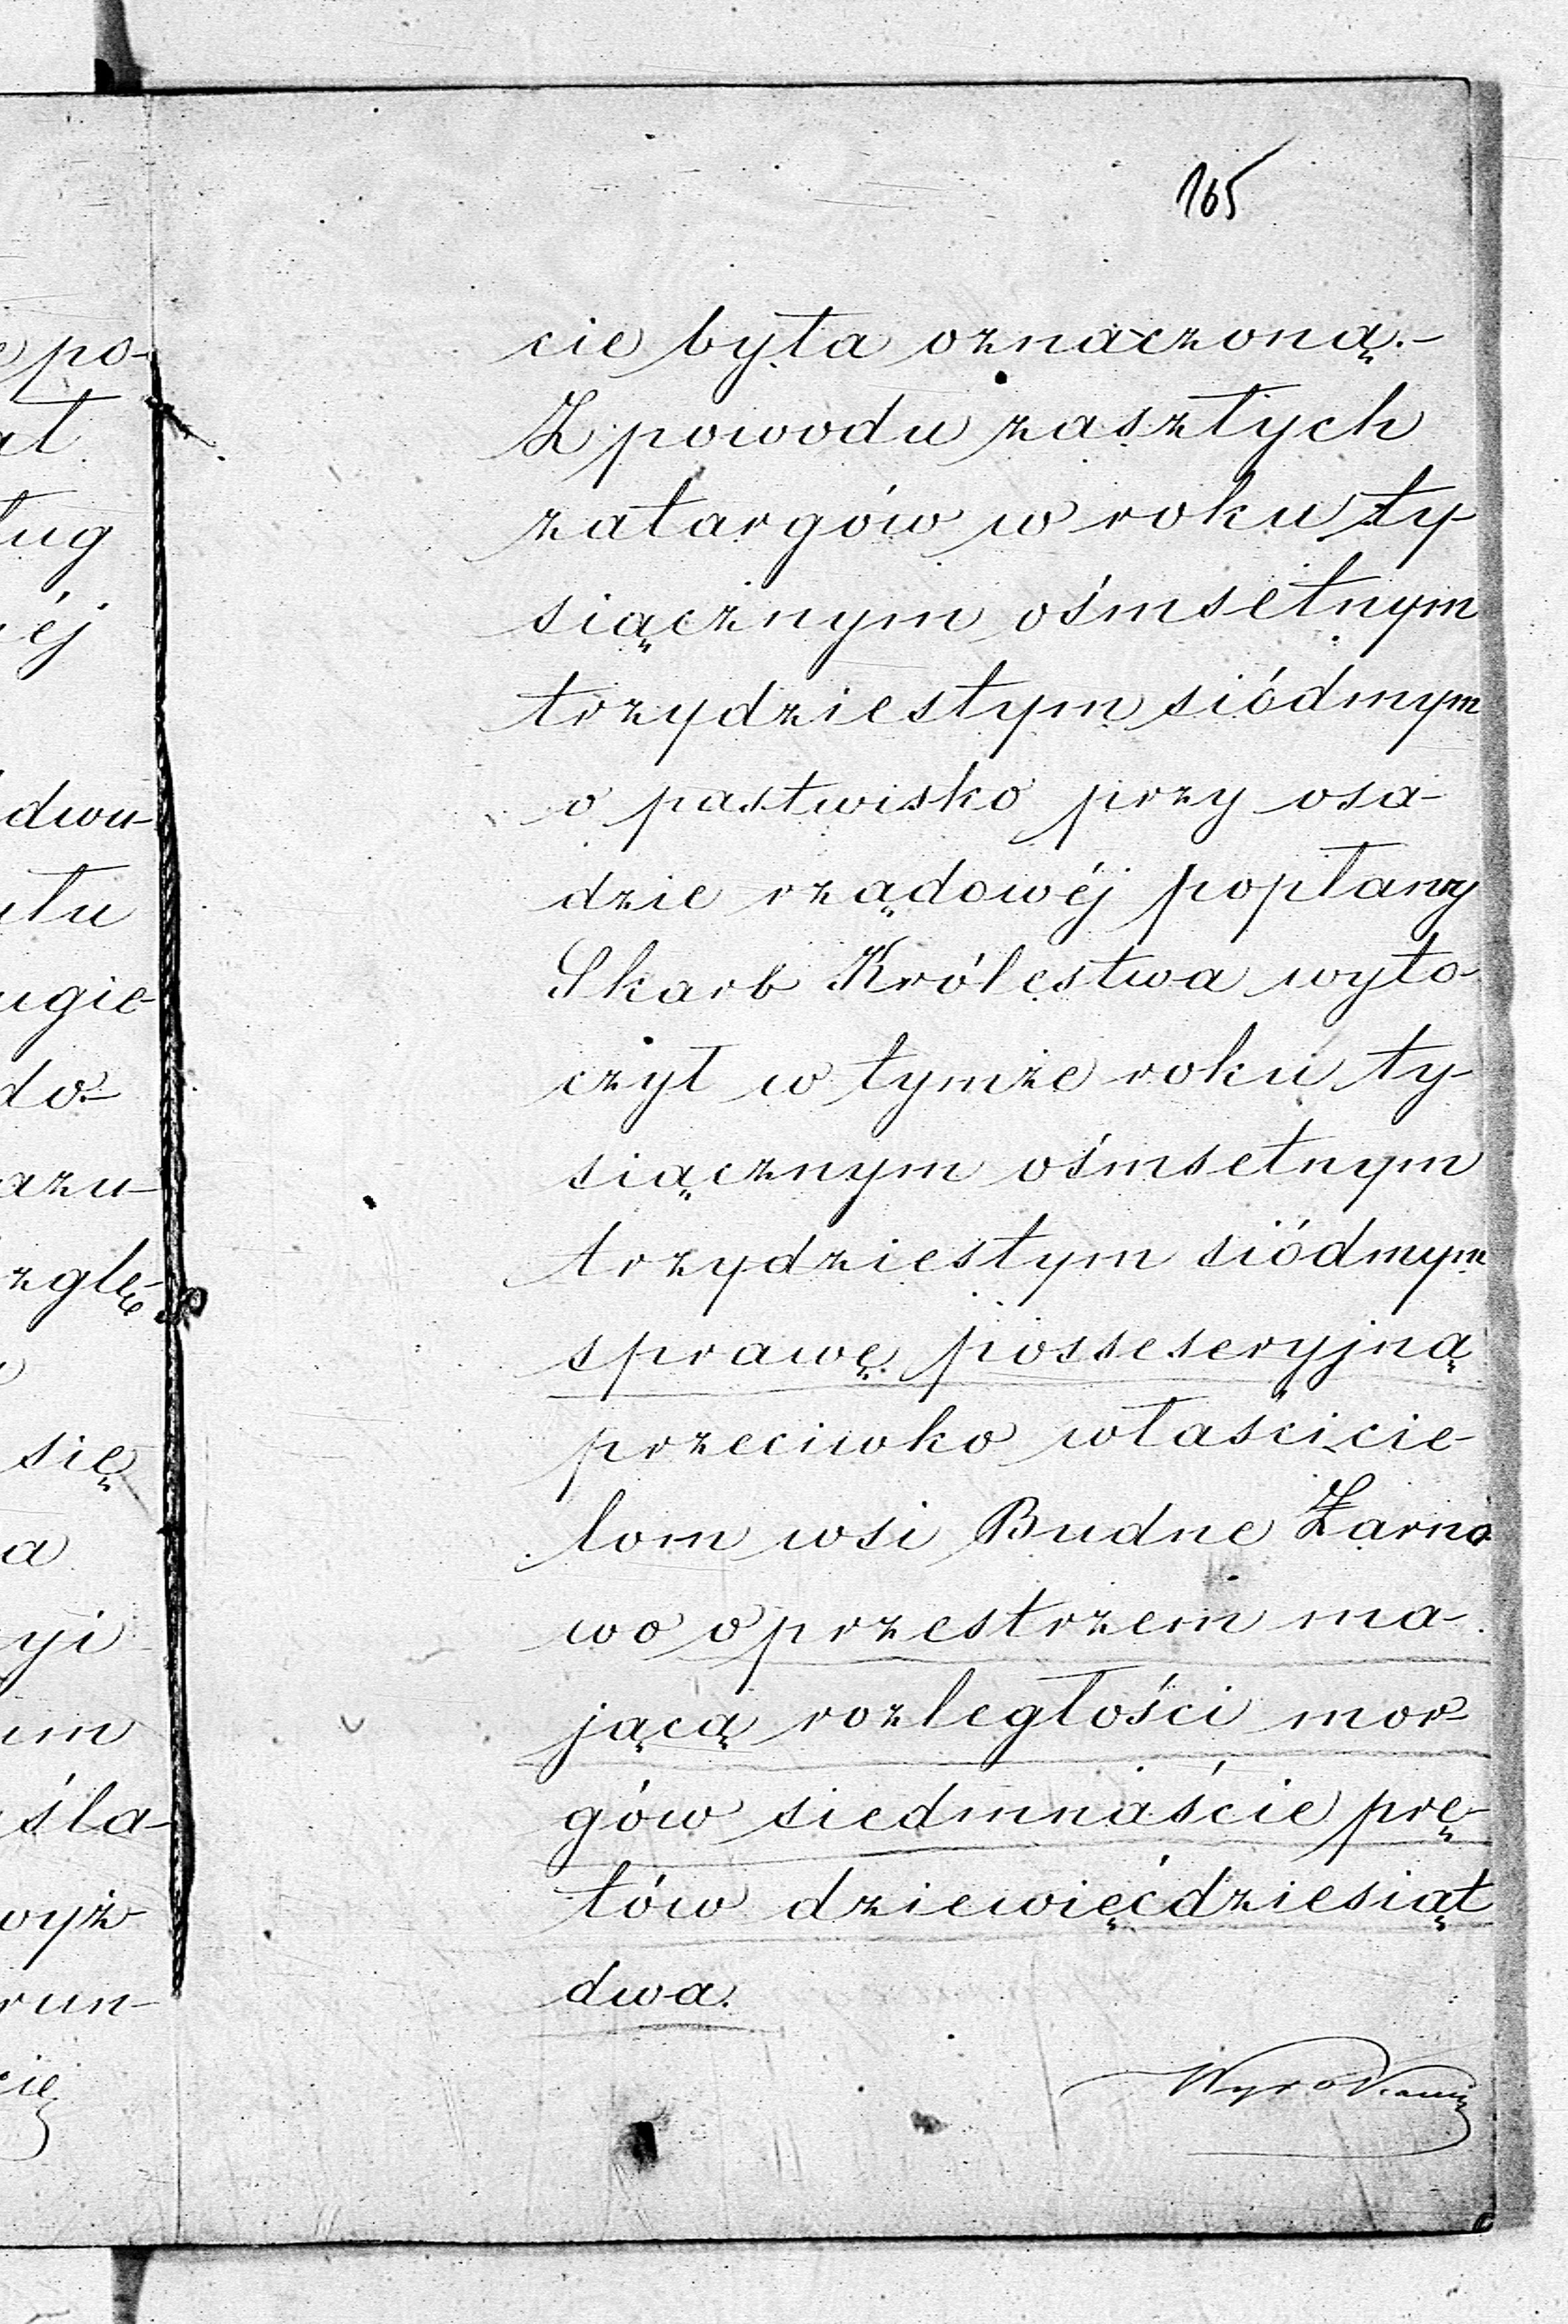 165
cie była oznaczoną.-
Z powodu zaszłych
zatargów w roku ty-
siącznym ośmsetnym
trzydziestym siódmym
o pastwisko przy osa-
dzie rządowéj popławy
Skarb Królestwa wyto-
czył w tymże roku ty-
siącznym ośmsetnym
trzydziestym siódmym
sprawę posseseryjną
przeciwko właścicie-
lom wsi Budne Żarno
wo o przestrzeń ma-
jącą rozległości mor-
gów siedmnaście prę-
tów dziewięćdziesiąt
dwa.
po-
ług
éj
dwu-
ugie-
do-
azu-
zglę-
się
a
yi
śla-
wyż-
run-